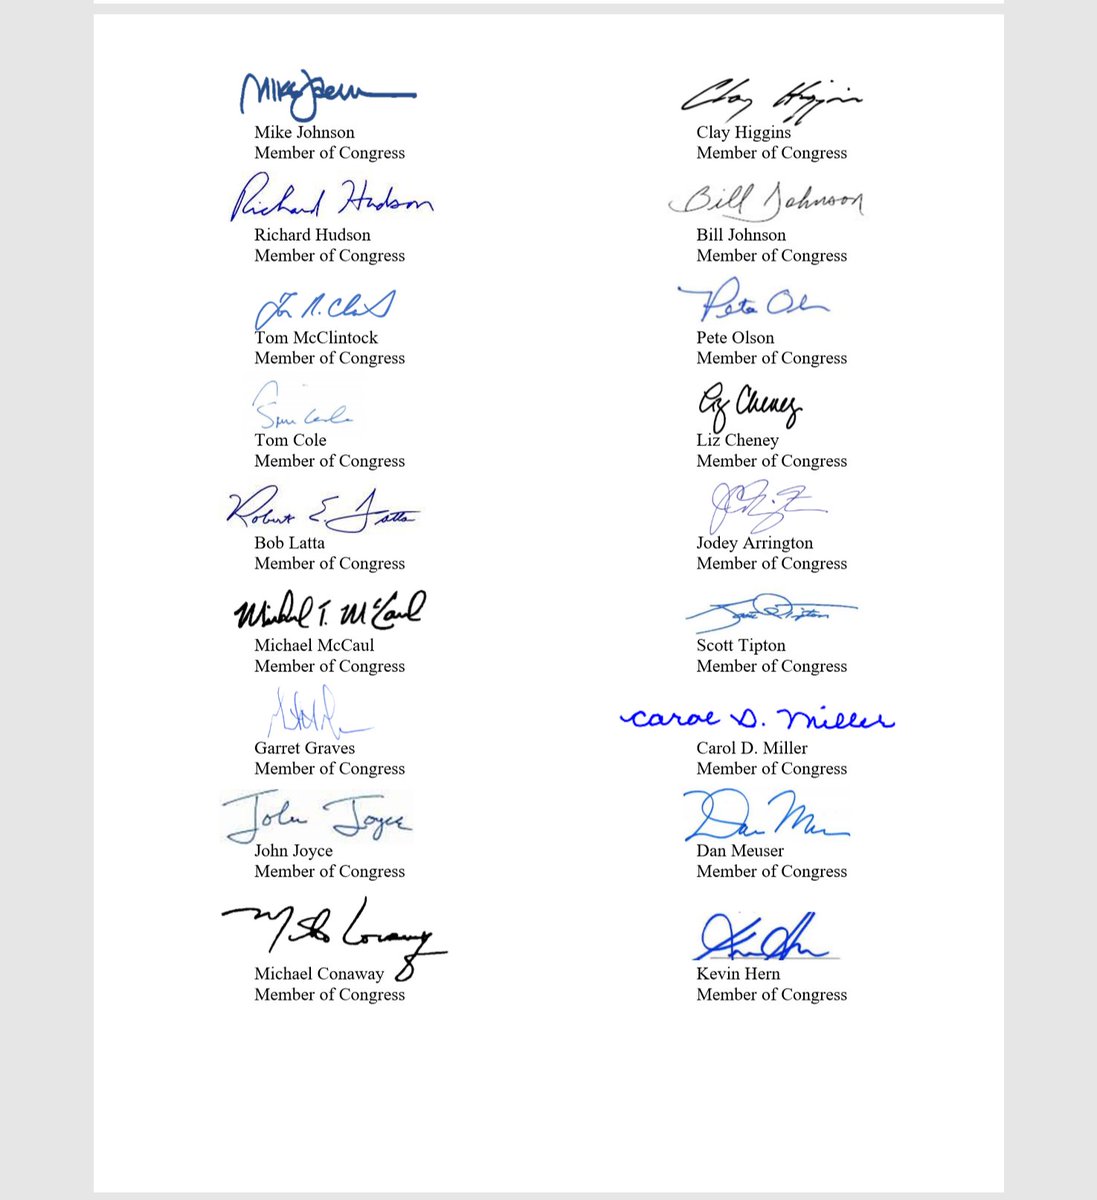 Mike Johnson
Member of Congress
Clay Higgins
Clay Higgins
Member of Congress
Richard Hudson
Richard Hudson
Member of Congress
Bill Johnson
Bill Johnson
Member of Congress
Tom McClintock
Member of Congress
Pete Olson
Member of Congress
Tom Cole
Member of Congress
Liz Cheney
Liz Cheney
Member of Congress
Robert E. Latta
Bob Latta
Member of Congress
Jodey Arrington
Member of Congress
Michael T. McCaul
Michael McCaul
Member of Congress
Scott Tipton
Member of Congress
Garret Graves
Member of Congress
Carol D. Miller
Carol D. Miller
Member of Congress
John Joyce
John Joyce
Member of Congress
Dan Meuser
Member of Congress
Michael Conaway
Member of Congress
Kevin Hern
Member of Congress